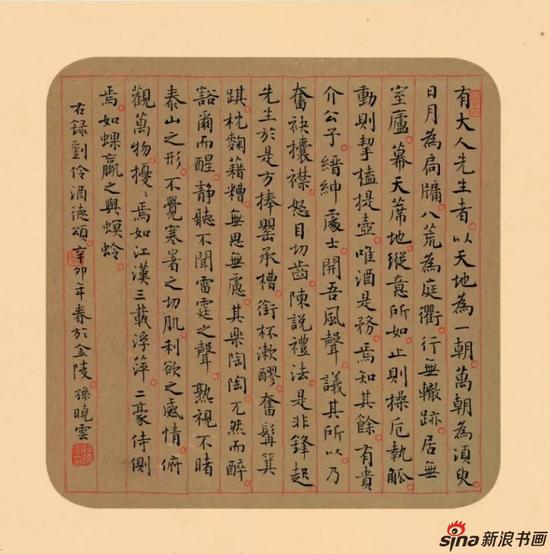 有大人先生者以天地為一朝萬朝為須臾
日月為扃牖八荒為庭衢行無轍跡居無
室廬幕天席地縱意所如止則操卮執觚
動則挈榼提壺唯酒是務焉知其餘有貴
介公子縉紳處士開吾風聲議其所以乃
奮袂攘襟怒目切齒陳說禮法是非鋒起
先生於是方捧罌承槽銜杯漱醪奮髯箕
踑枕麴藉糟無思無慮其樂陶陶兀然而醉
豁爾而醒靜聽不聞雷霆之聲熟視不睹
泰山之形不覺寒暑之切肌利欲之感情俯
觀萬物擾〻焉如江漢三載浮萍二豪侍側
焉如蜾蠃之與螟蛉
右錄劉伶酒德頌辛卯年春於金陵孫曉雲
sina 新浪书画